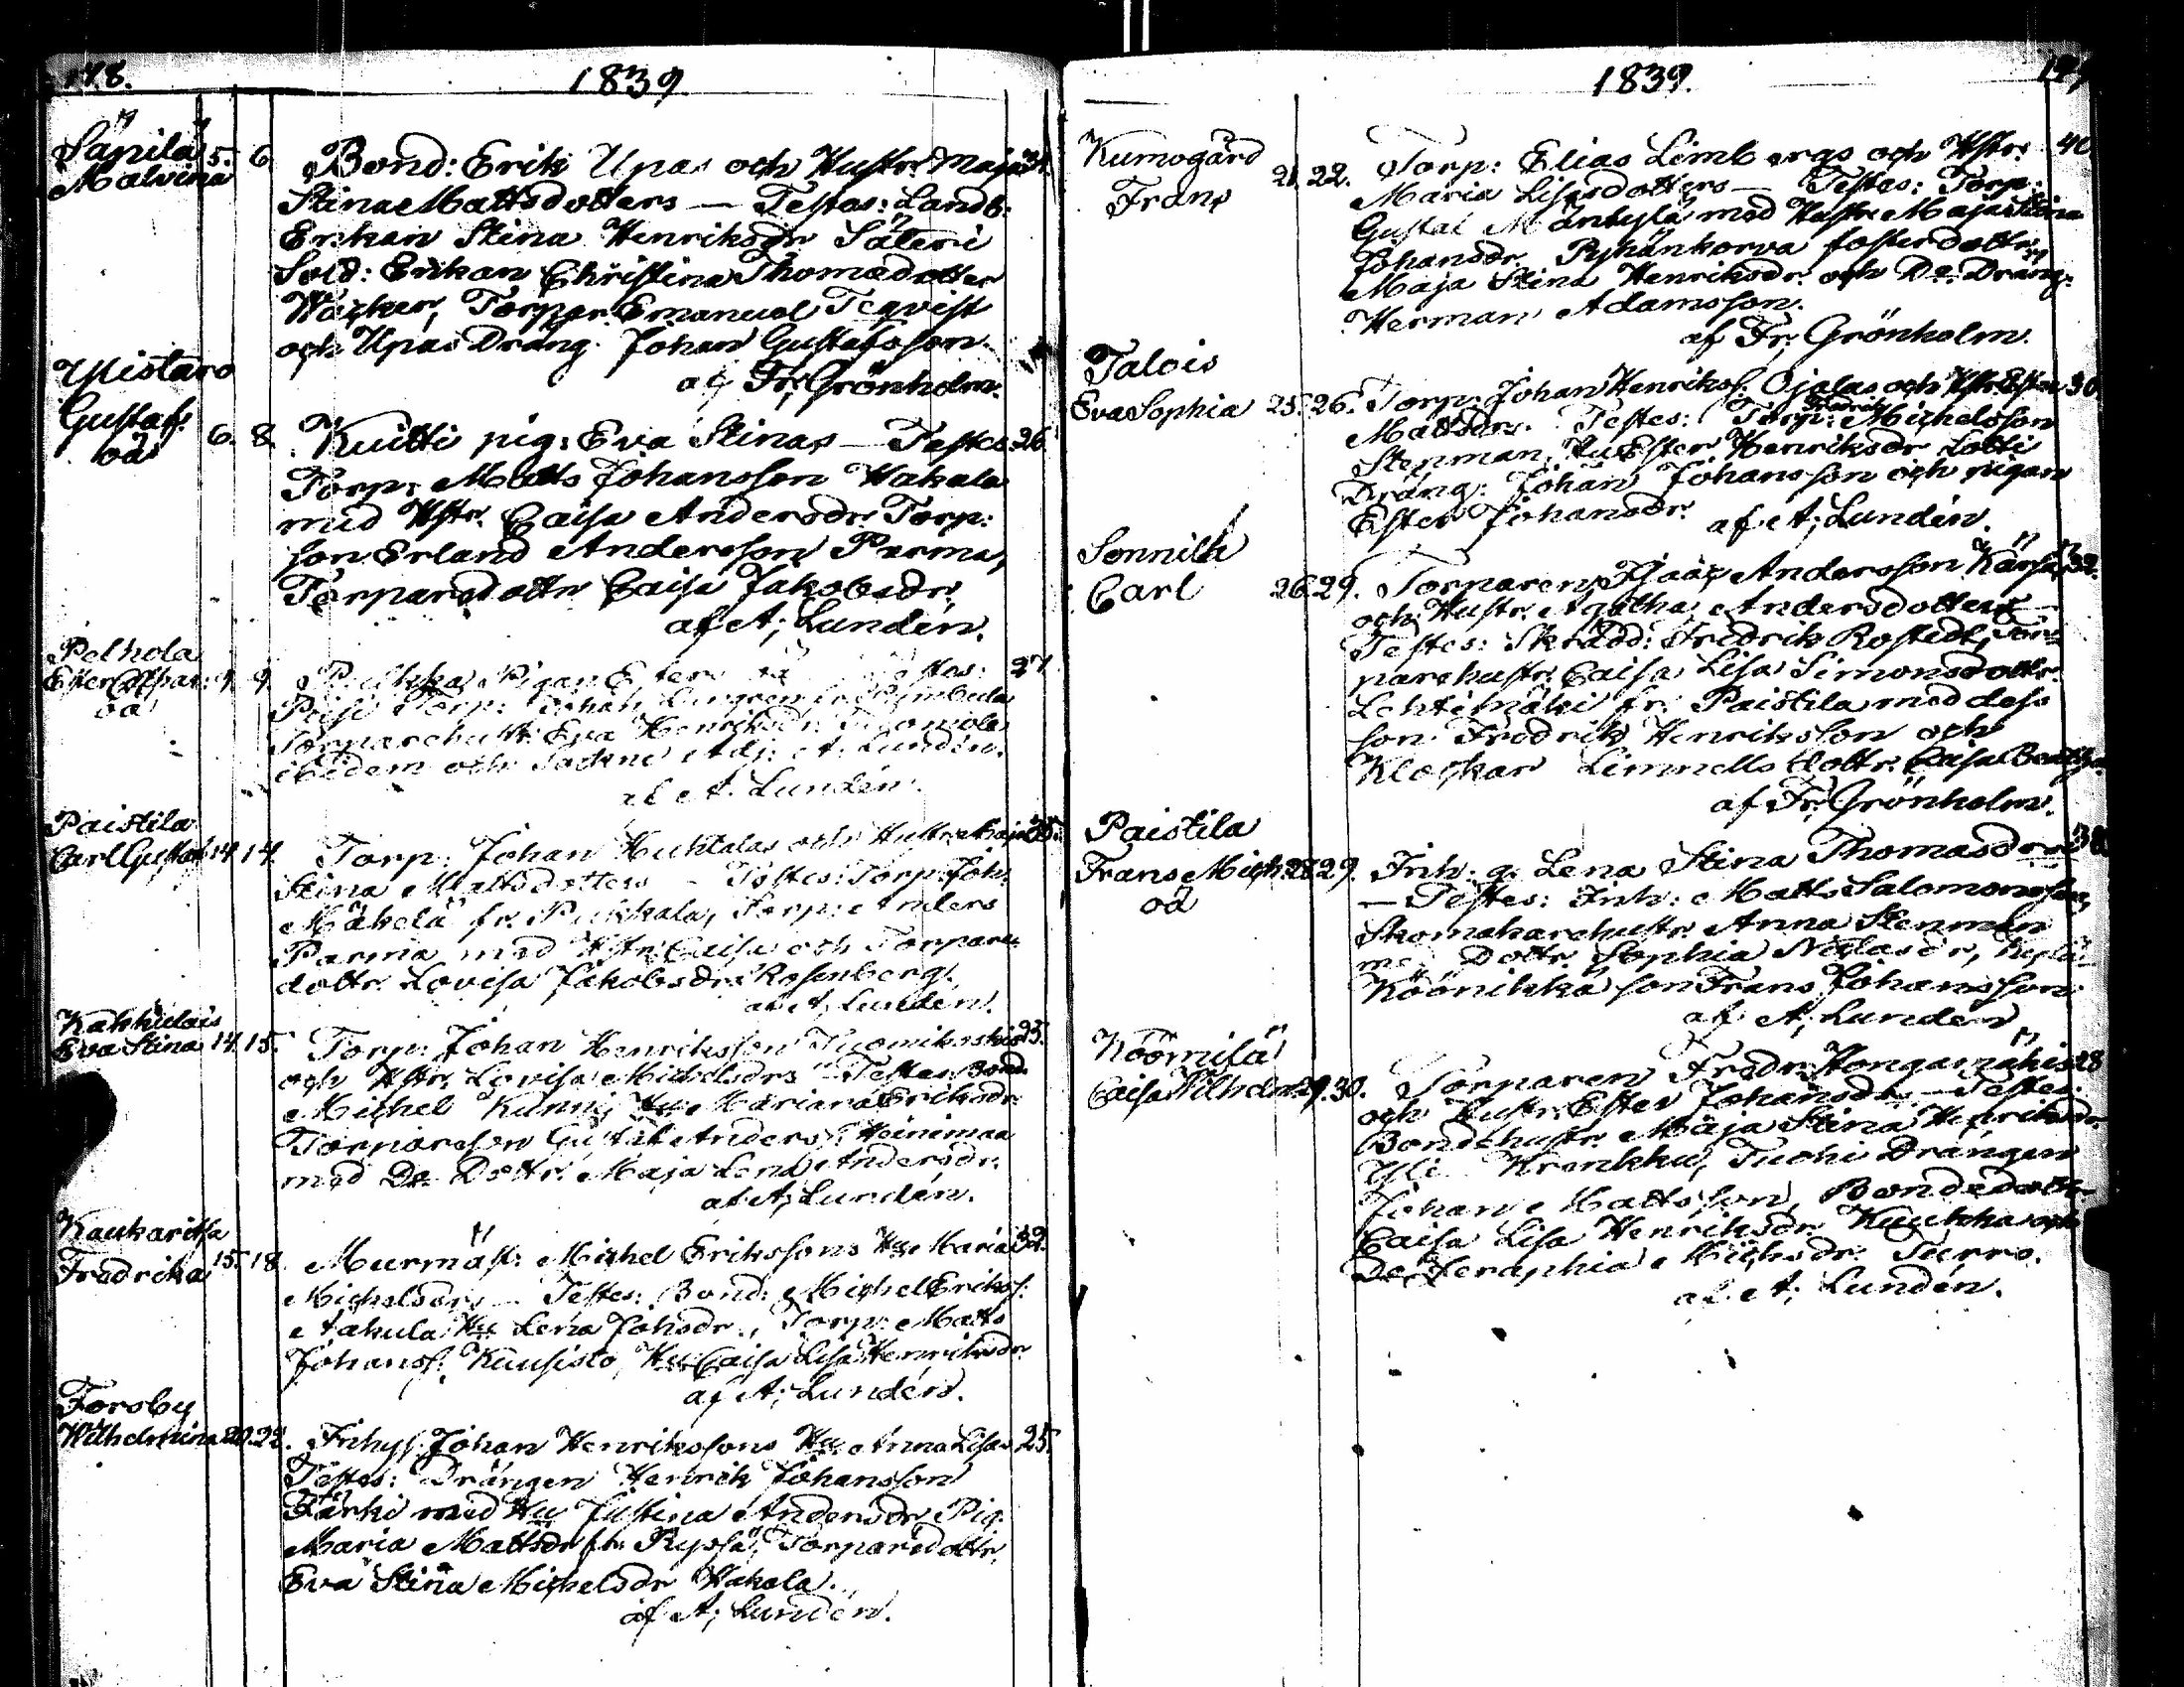 178.
1839
Sänilä 5. 6. Bond: Erik Upas och Hustr. Maja 34.
Malvina
Stina Mattsdotters — Testes: Landb:
Enkan Stina Henriksdr Säteri
Sold: Enkan Christina Thomasdotter
Wäcker, Torpar. Emanuel Teqvist
och Upas Dräng. Johan Gustafsson.
af Fr; Grönholm.
Ylistaro
Gustaf. 6. 8. Kuitti pig: Eva Stinas — Testes 26
oä
Torp: Matts Johansson Hakala
med Hstr. Caisa Andersdr. Torp:
son Erland Andersson Parma,
Torparedottr Caisa Jakobsdr.
af A; Lundén.
Pelhola
Ester 9. 9. Pigan 27.
oä
Torp: Johan
Torparehustr. Eva Henriksdr.
ibidem och Adj: A. Lundén.
af A. Lundén.
Paistila
Carl Gustaf 14. 14. Torp: Johan Huhtalas och Hustr. Maja 35.
Stina Mattsdotters — Testes: Torp: Joh:
Mäkelä fr. Pukkala, Torp: Anders
Parma med Hstr. Caisa och Torpare
dottr. Lovisa Jakobsdr. Rosenberg.
af A; Lundén.
Kakkulais
Eva Stina 14. 15. Torp: Johan Henriksson 23.
och Hstr. Lovisa Michelsdrs — Testes: Bond:
Michel Kunni, Hu Mariana Eriksdr.
Torpareson Gustaf Anders: Heinimaa
med Do Dottr. Maja Lena Andersdr.
af A; Lundén.
Kaukaritsa
Fredrika 15. 18. Murmäst: Michel Erikssons Hu Maria 32.
Michelsdrs — Testes: Bond: Michel Eriks:
Hu Lena Johsdr., Torp: Matts
Johanss: Kuusisto, Hu Caisa Lisa Henriksdr.
af A; Lundén.
Forsby
Wilhelmina 20. 22. Inhys: Johan Henrikssons Hu Anna Lisas 25.
Testes: Drängen Henrik Johansson
Pärki med Hu Justina Andersdr. Pig.
Maria Mattsdr fr. Ryssä, Torparedottr.
Eva Stina Michelsdr Hakala.
af A; Lundén.
1839.
Kumogård
Frans 21. 22. Torp: Elias Limbergs och Hstr. 40.
Maria Lisasdotters — Testes: Torp:
Gustaf Mäntylä med Hustr. Maja Stina
Johansdr. Pyhänkorva fosterdottr.
Maja Stina Henriksdr. och Do: Dräng:
Herman Adamsson.
af Fr; Grönholm.
Talois
Eva Sophia 25. 26. Torp: Johan Henrikss: Ojalas och Hstr. Ester 30.
Mattsdrs. Testes: Torp: Fredrik Michelsson
Stenman, Hu Ester Henriksdr Lotti
Dräng: Johan Johansson och pigan
Ester Johansdr. af A; Lundén.
Sonnila
Carl 26. 29. Torparen Isaac Andersson Kärsä 32.
och Hustr. Agatha Andersdotters —
Testes: Skrädd: Fredrik Rostedt, Tor-
parehustr. Caisa Lisa Simonsdottr.
Lehtimäki fr. Paistila med dess
son Fredrik Henriksson och
Klockar Limnells dottr. Caisa
af Fr. Grönholm.
Paistila
Frans Mich: 28. 29. Inh: q. Lena Stina Thomasdrs
oä
— Testes: Inh: Matts Salomonsson,
Skomakarehustr. Anna Stenman
med Dottr. Sophia Niclasdr,
Köönikkä son Frans Johansson
af A; Lundén
Köömilä
Caisa Wilhelm: 29. 30. Torparen Fredr: Hongamäkis 28
och Hustr. Ester Johansdr. — Testes:
Bondehustr. Maja Stina Henriksdr.
Yli Krenkku, Tuohi Drängen
Johan Mattsson, Bondedottr.
Caisa Lisa Henriksdr. Kuukka och
Do Seraphia Michsdr. Turro.
af A; Lundén.